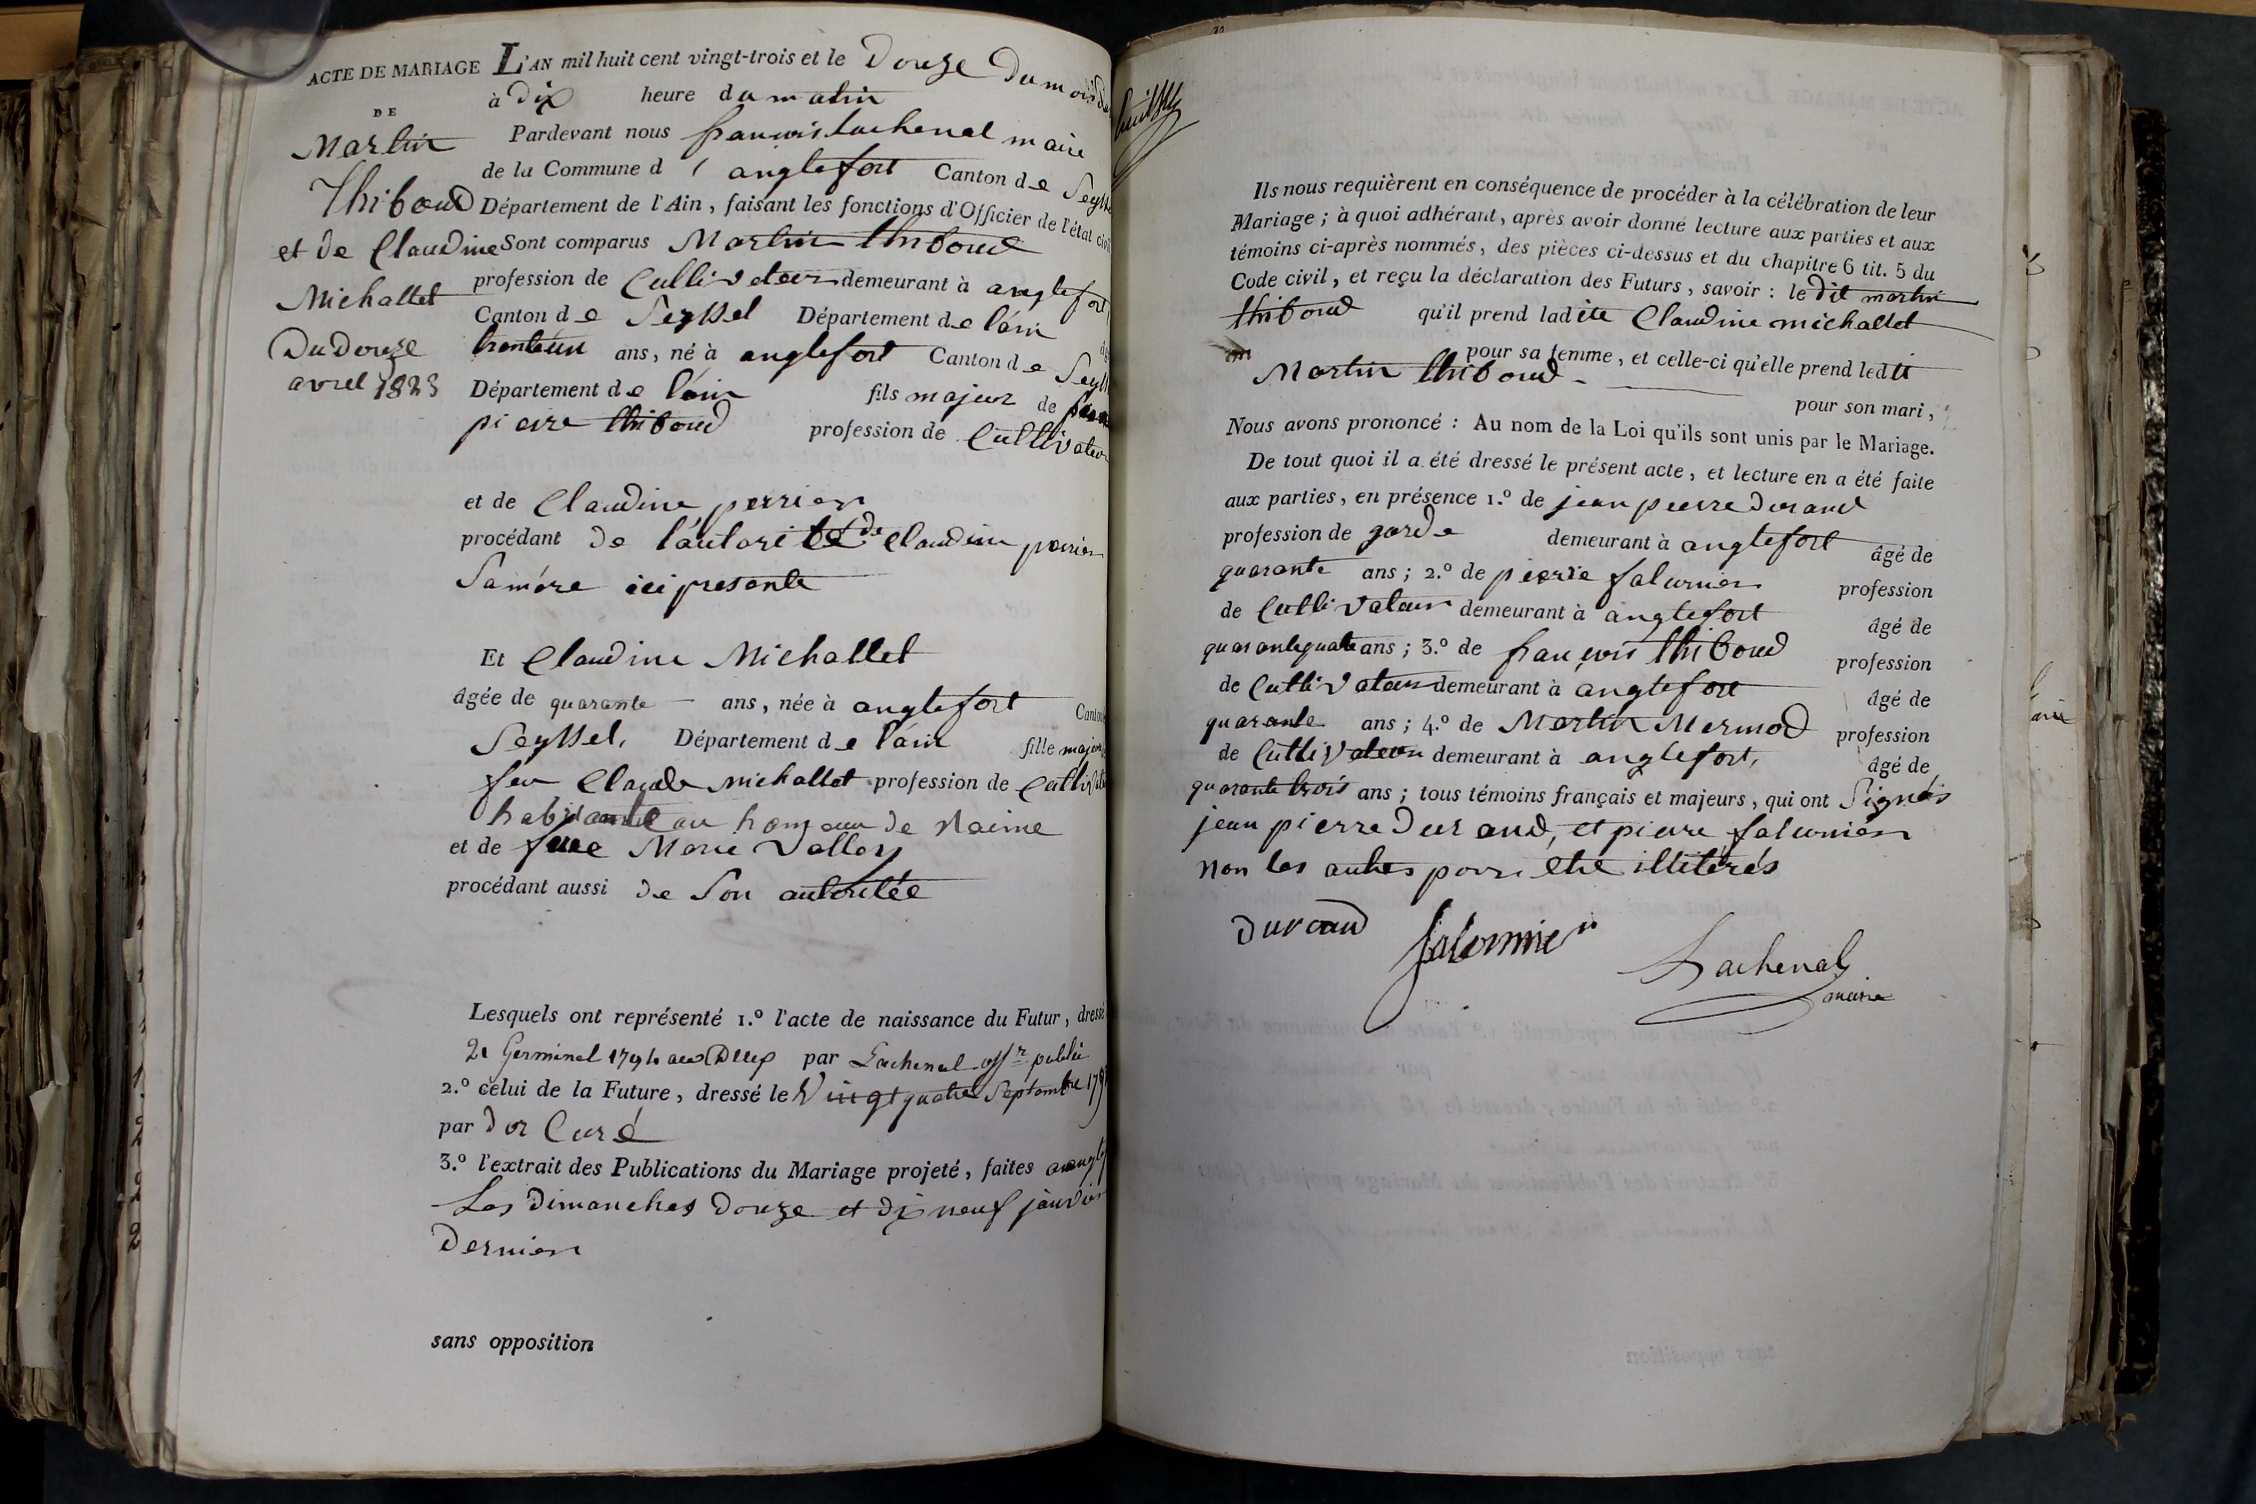 ACTE DE MARIAGE
DE
Martin
Thiboud
et de Claudine
Michallet
Du Douze
avril 1823
L'AN mil huit cent vingt-trois et le Douze du mois d
à Dix heure du matin
Pardevant nous françois Lachenal maire
de la Commune d' anglefort Canton de Seyssel
Département de l'Ain, faisant les fonctions d'Officier de l'état civil
Sont comparus Martin thiboud
profession de Cultivateur demeurant à anglefort
Canton de Seyssel Département de l'ain
trenteun ans, né à anglefort Canton de Seyssel
Département de l'ain fils majeur de
pierre thiboud profession de Cultivateur
et de Claudine perrier
procédant de l'autorité de Claudine perrier
Samére ici presente
Et Claudine Michallet
âgée de quarante ans, née à anglefort Canton
Seyssel, Département de l'ain fille majeure
feu Claude michallet profession de Cultivateur
habitant au hameau de
et de feue Marie Vallory
procédant aussi de Son autoritée
Lesquels ont représenté 1.º l'acte de naissance du Futur, dressé
21 Germinal 1794 par Lachenal offr public
2.º celui de la Future, dressé le Vingtquatre Septembre
par Dor Curé
3.º l'extrait des Publications du Mariage projeté, faites
Les dimanches douze et dix neuf janvier
Dernier
sans opposition
Ils nous requièrent en conséquence de procéder à la célébration de leur
Mariage ; à quoi adhérant, après avoir donné lecture aux parties et aux
témoins ci-après nommés, des pièces ci-dessus et du chapitre 6 tit. 5 du
Code civil, et reçu la déclaration des Futurs, savoir : le dit martin
thiboud qu'il prend ladite Claudine michallet
pour sa femme, et celle-ci qu'elle prend ledit
Martin thiboud
pour son mari,
Nous avons prononcé : Au nom de la Loi qu'ils sont unis par le Mariage.
De tout quoi il a été dressé le présent acte, et lecture en a été faite
aux parties, en présence 1.º de jean pierre Durand
profession de garde demeurant à anglefort âgé de
quarante ans ; 2.º de pierre falconnier profession
de Cultivateur demeurant à anglefort âgé de
quarantequatre ans ; 3.º de françois thiboud profession
de Cultivateur demeurant à anglefort âgé de
quarante ans ; 4.º de Martin Mermod profession
de Cultivateur demeurant à anglefort, âgé de
quarante trois ans ; tous témoins français et majeurs, qui ont Signés
jean pierre Durand, et pierre
non les autres pour etre illitérés
Durand
Lachenal
maire